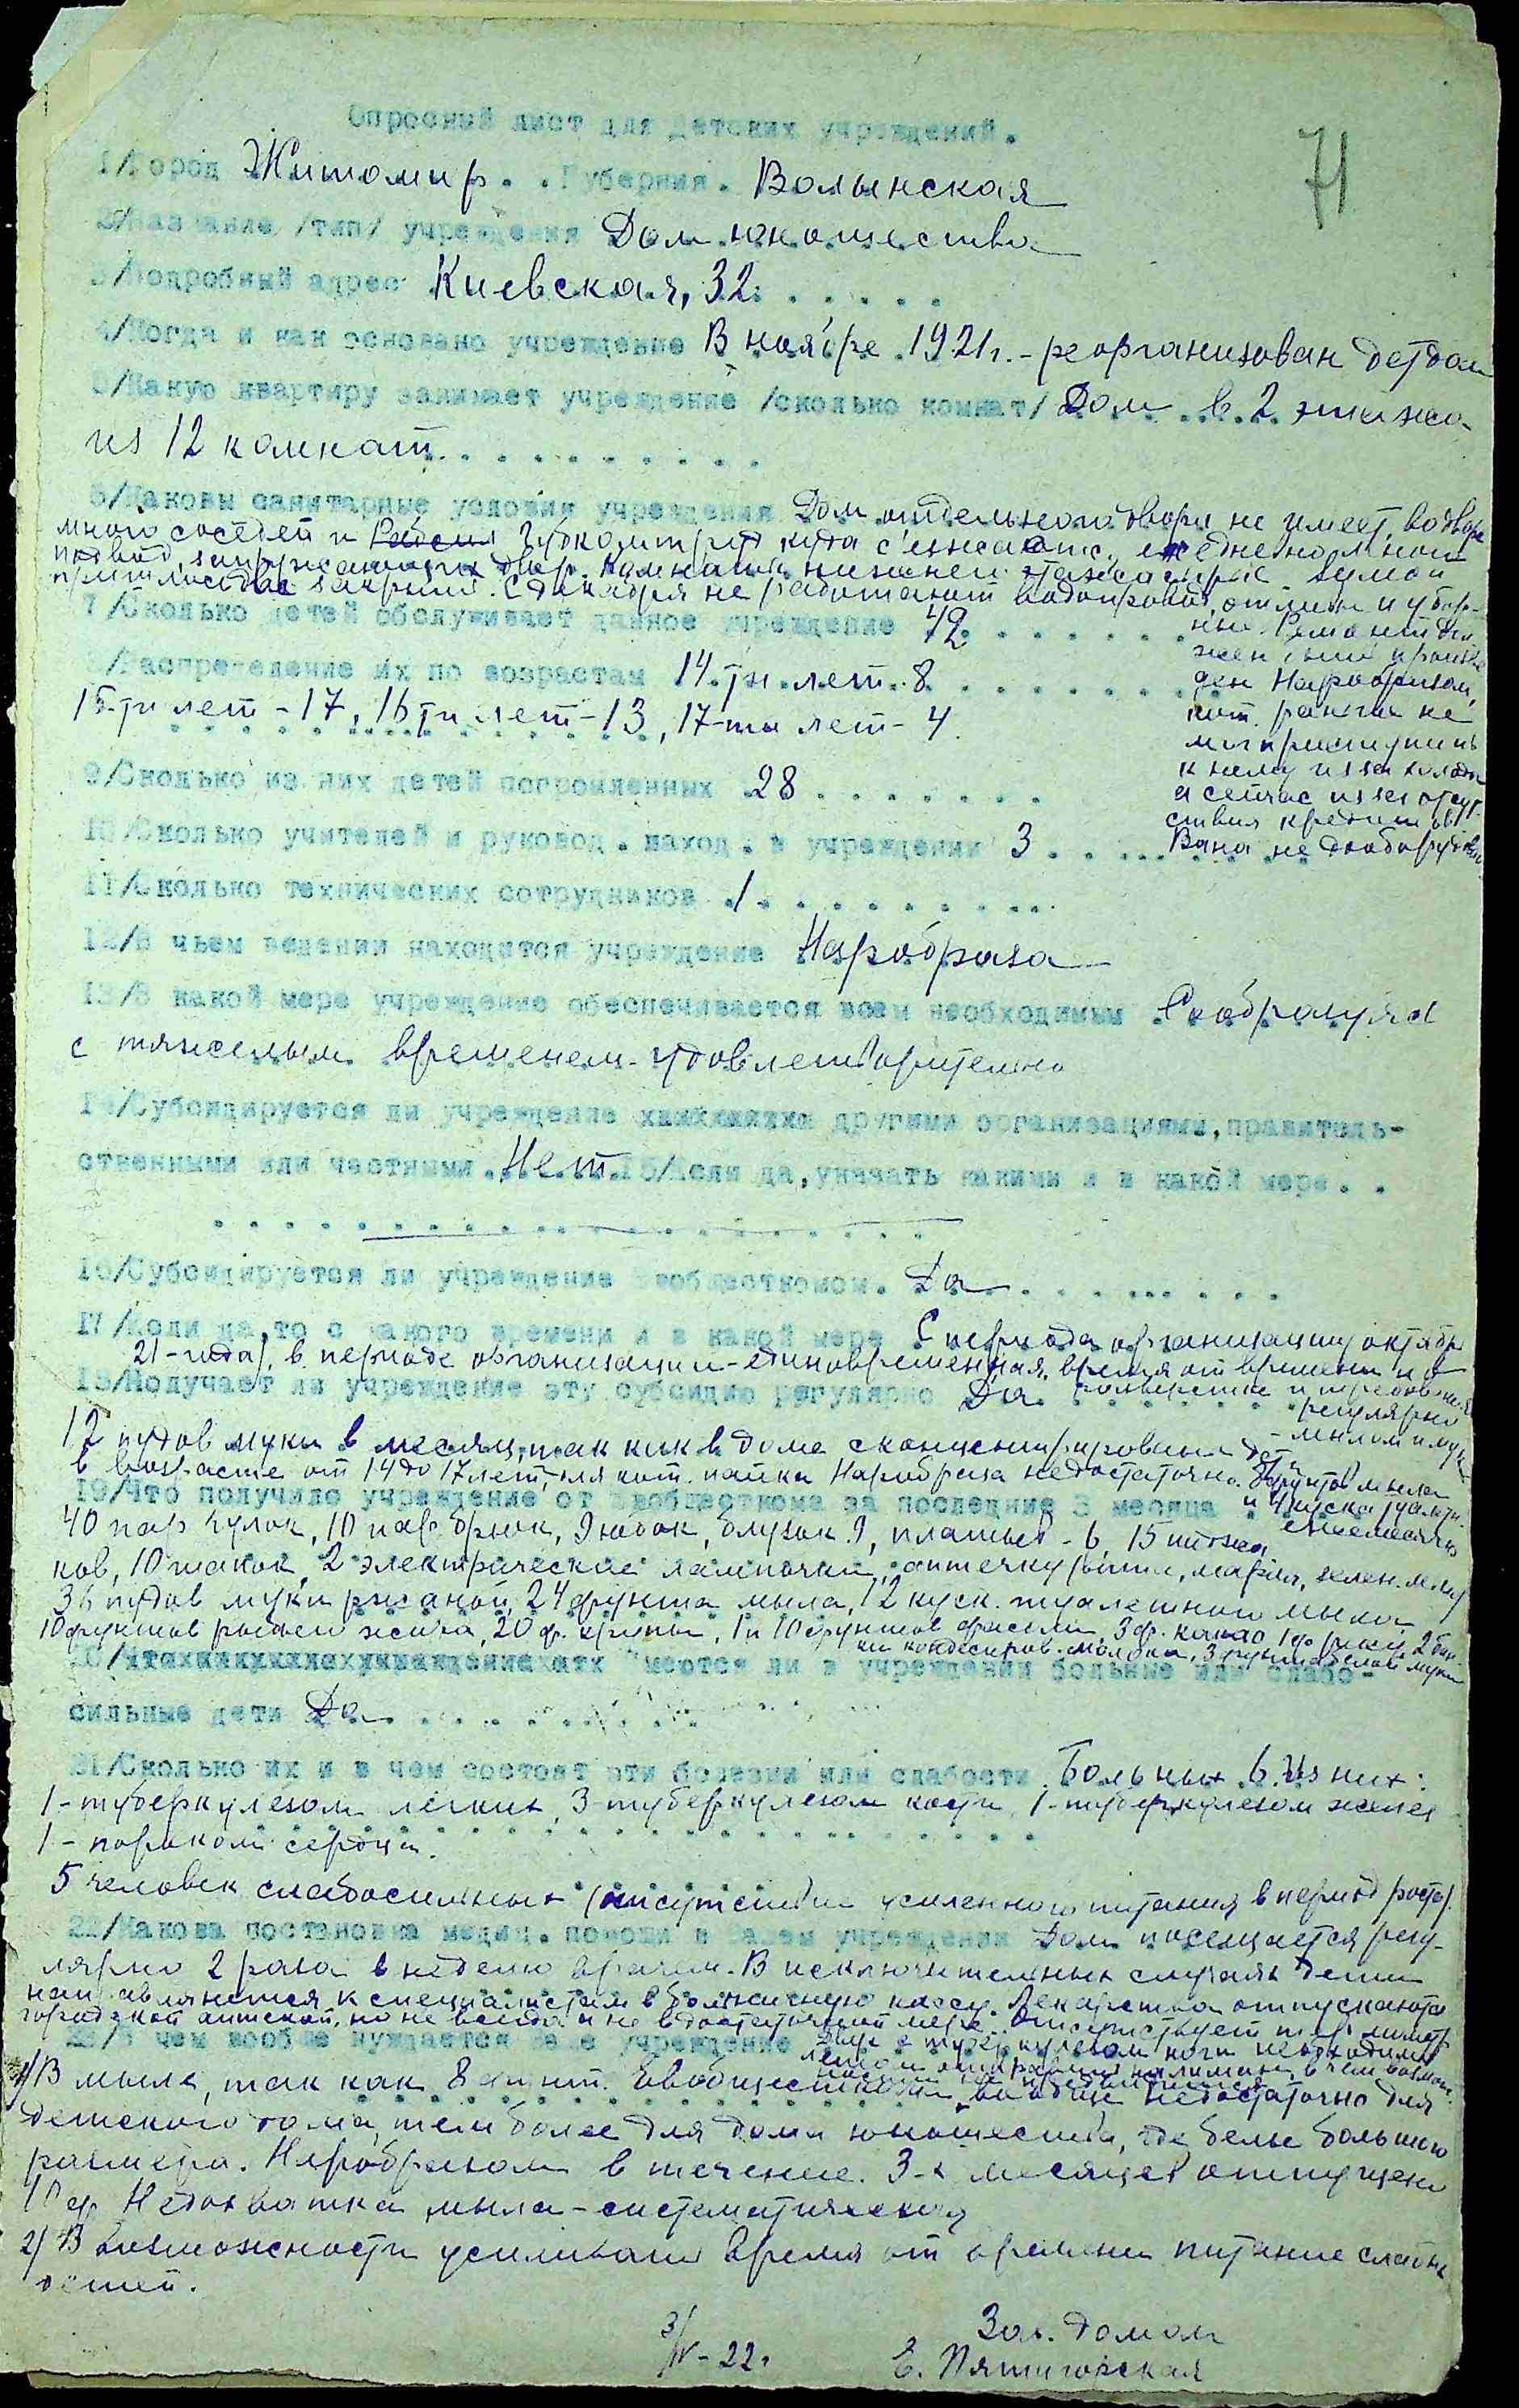 71
Опросный лист для детских учреждений.
1/Город Житомир. . Губерния. Волынская
2/Название /тип/ учреждения Дом юношества
3/Подробный адрес Киевская, 32. . . . . .
4/Когда и как основано учреждение В ноябре 1921 г. - реорганизован детдом
5/Какую квартиру занимает учреждение /сколько комнат/ Дом в 2 этажа
из 12 комнат. . . . . . . . . .
6/Каковы санитарные условия учреждения Дом отдельного двора не имеет, во дворе
много соседей и куда с'езжаются ежедневно много
подвод, двор. Комнаты нижнего этажа сыры. Зимой
С декабря не работают водопровод, отливы и убор-
ные. Ремонт дол-
жен быть произве
ден Наробразом,
кот. раньше не
мог приступить
к нему из за холода
а сейчас из за отсут-
ствия кредитов.
Вана не дооборудована
7/Сколько детей обслуживает данное учреждение 42. . . . . . .
8/Распределение их по возрастам 14-ти лет - 8 . . . . . . .
15-ти лет - 17, 16 ти лет - 13, 17-ти лет - 4.
9/Сколько из них детей погромленных 28 . . . . . . .
10/Сколько учителей и руковод. наход. в учреждении 3 . . . . .
11/Сколько технических сотрудников 1 . . . . . . . . . .
12/В чьем ведении находится учреждение Наробраза
13/В какой мере учреждение обеспечивается всем необходимым Сообразуясь
с тяжелым временем - удовлетворительно
14/Субсидируется ли учреждение другими организациями, правитель-
ственными или частными. Нет. 15/Если да, указать какими и в какой мере. .
16/Субсидируется ли учреждение Евобщесткомом. Да . . . . . . . .
17/Если да, то с какого времени и в какой мере С периода организации /октябрь
21-года/, в периоде организации - единовременная, время от времени и
регулярно
- мылом и мукой
18/Получает ли учреждение эту субсидию регулярно Да . . . . . .
12 пудов муки в месяц, так как в доме сконцентрированы дети
в возрасте от 14 до 17 лет, для кот. пайка Наробраза недостаточно. 8 фунтов мыла
и 4 куска туалетн.
ежемесячно
19/Что получило учреждение от Евобщесткома за последние 3 месяца
40 пар чулок, 10 пар брюк, 9 юбок, блузок 9, платьев - 6, 15
ков, 10 шапок, 2 электрические лампочки, аптечку /бинты, марля, зелен. мыло/
36 пудов муки ржаной, 24 фунта мыла, 12 куск. туалетного мыла,
10 фунтов рыбьего жира, 20 ф. крупы, 1 п 10 фунтов фасоли, 3 ф. какао 1 ф. рису, 2 бан-
ки кондесиров. молока, 3 фунта белой муки
20/ Имеются ли в учреждении больные или слабо-
сильные дети Да . . . . . . . . . .
21/Сколько их и в чем состоят эти болезни или слабости Больных 6. Из них:
1 - туберкулезом легких, 3 - туберкулезом кости, 1 - туберкулезом желез
1 - пороком сердца.
5 человек слабосильных /отсутствие усиленного питания в период роста/.
22/Какова постановка медиц. помощи в Вашем учреждении Дом посещается регу-
лярно 2 раза в неделю врачем. В исключительных случаях дети
направляются к специалистам в больничную кассу. Лекарства отпускаются
городской аптекой, но не всегда и не в достаточной мере. Отсутствует
23/В чем вообще нуждается Ваше учреждение
1/ В мыле, так как 8 фунт. Евобщесткома вообще недостаточно для
детского дома, тем более для дома юношества, где белье большого
размера. Наробразом в течение 3-х месяцев отпущено
10 ф. Недохватка мыла - систематическая
2/ В возможности усиливать время от времени питание слабых
детей.
Зав. домом
3/IV - 22 г. Е. Пятигорская